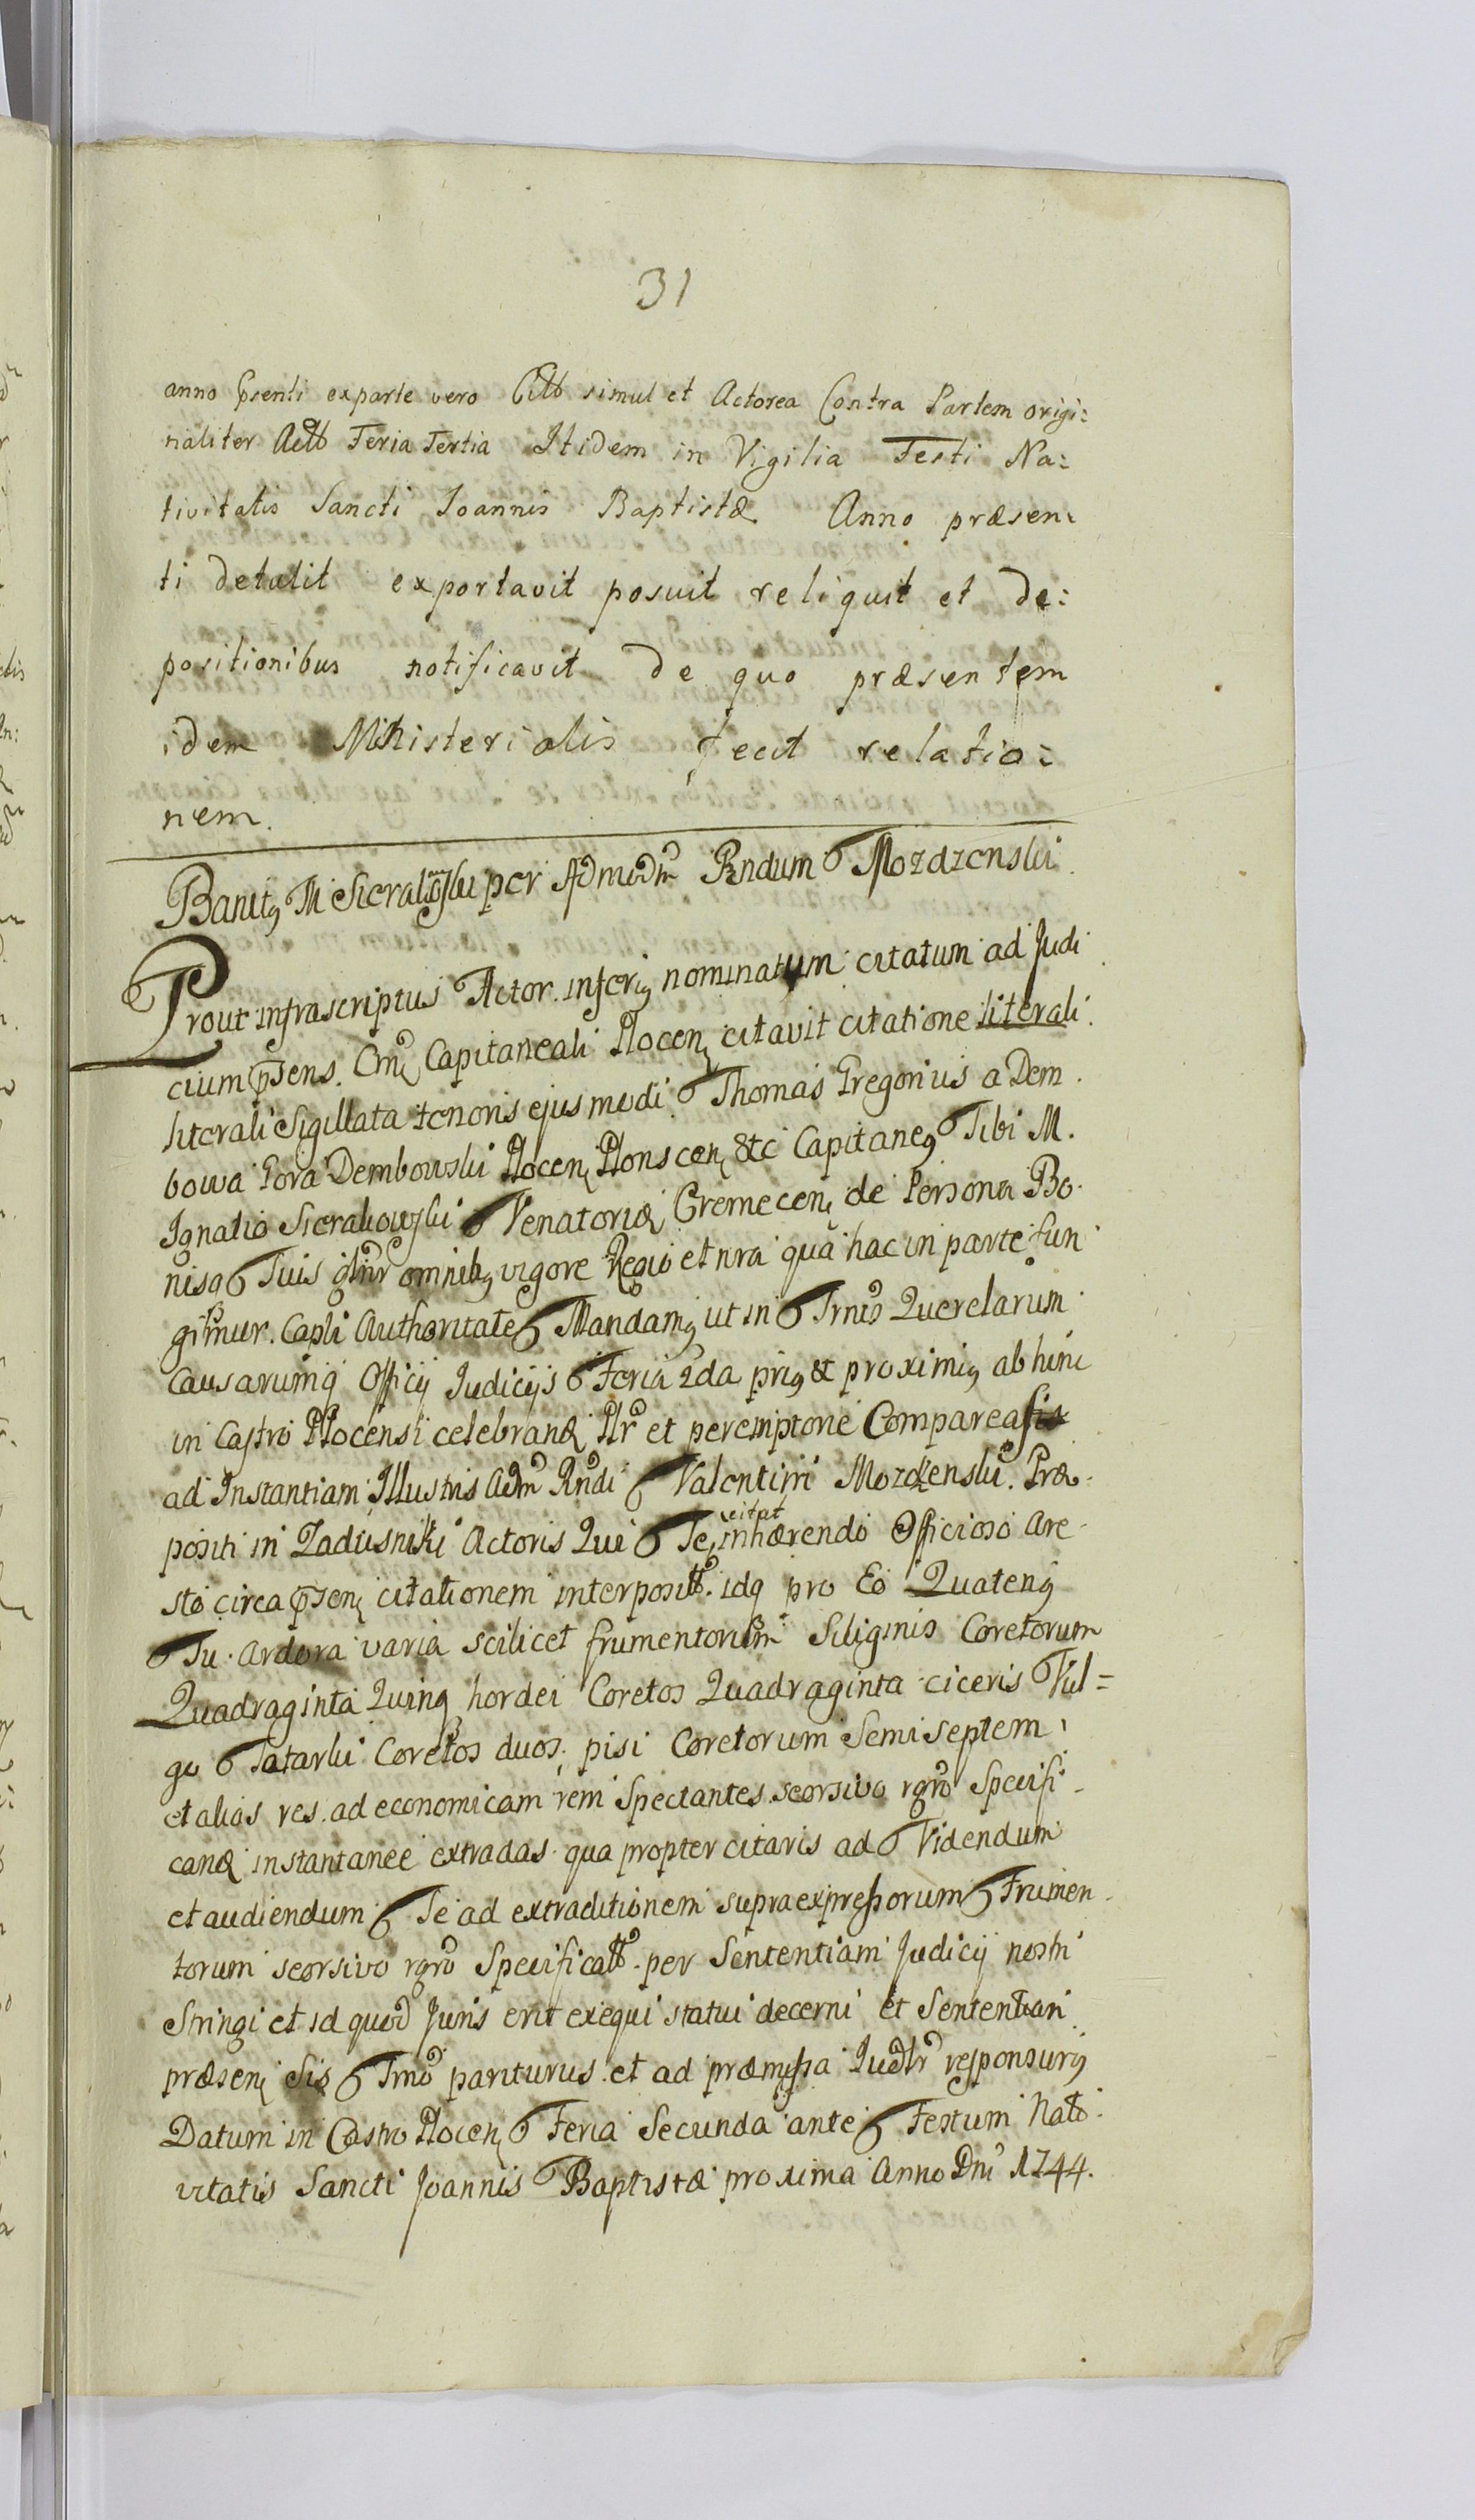 31
anno psenti ex parte vero Citt simul et Actorea Contra Partem origi:
naliter Actt Feria Tertia Itidem in Vigilia Festi Na:
tivitatis Sancti Joannis Baptistæ Anno præsen:
ti detulit exportavit posuit reliquit et de:
positionibus notificavit de quo præsentem
idem Ministerialis fecit relatio:
nem.
Banitq M Sierakowski per Admodm Rndum Mozdzenski
Prout infrascriptus Actor inferiq nominatum citatum ad Judi
cium psens Capitaneali Plocen citavit citatione literali
literali Sigillata tenoris ejusmodi Thomas Gregorius a Dem
bowa Gora Dembowski Plocen Plonscen &tc Capitaneq Tibi M.
Ignatio Sierakowski Venatoridæ Cremecen de Persona Bo
nisq Tuis gnlr omnibq vigore Regio et nra qua hac in parte fun
gimur. Capli Authoritate Mandamq ut in Trnis Querelarum
Causarumq Officij Judicijs Feria 2da priq & proximiq ab hinc
in Castro Plocensi celebrand Plr et peremptorie Compareas
ad Instantiam Illustris Adm Rndi Valentini Mozdzenski Præ
positi in Zadusniki Actoris Qui Te citat inhærendo Officioso Are
sto circa psen citationem interposit. idq pro Eo Quatenq
Tu Ardora varia scilicet frumentorum Siliginis Coretorum
Quadraginta Quinq hordei Coretos Quadraginta ciceris Vul=
go Tatarki Coretos duos pisi Coretorum Semiseptem
et alias res ad economicam rem Spectantes seorsivo rgro Specifi
cand instantanee extradas qua propter citaris ad Videndum
et audiendum Te ad extraditionem supraexpressorum Frumen
torum seorsivo rgro Specificatt per Sententiam Judicij nostri
Stringi et id quod Juris erit exequi statui decerni et Sententiari
præsen Sis Trno pariturus et ad præmissa Judlr responsurq
Datum in Castro Plocen Feria Secunda ante Festum Nati
vitatis Sancti Joannis Baptistæ proxima Anno Dni 1744.